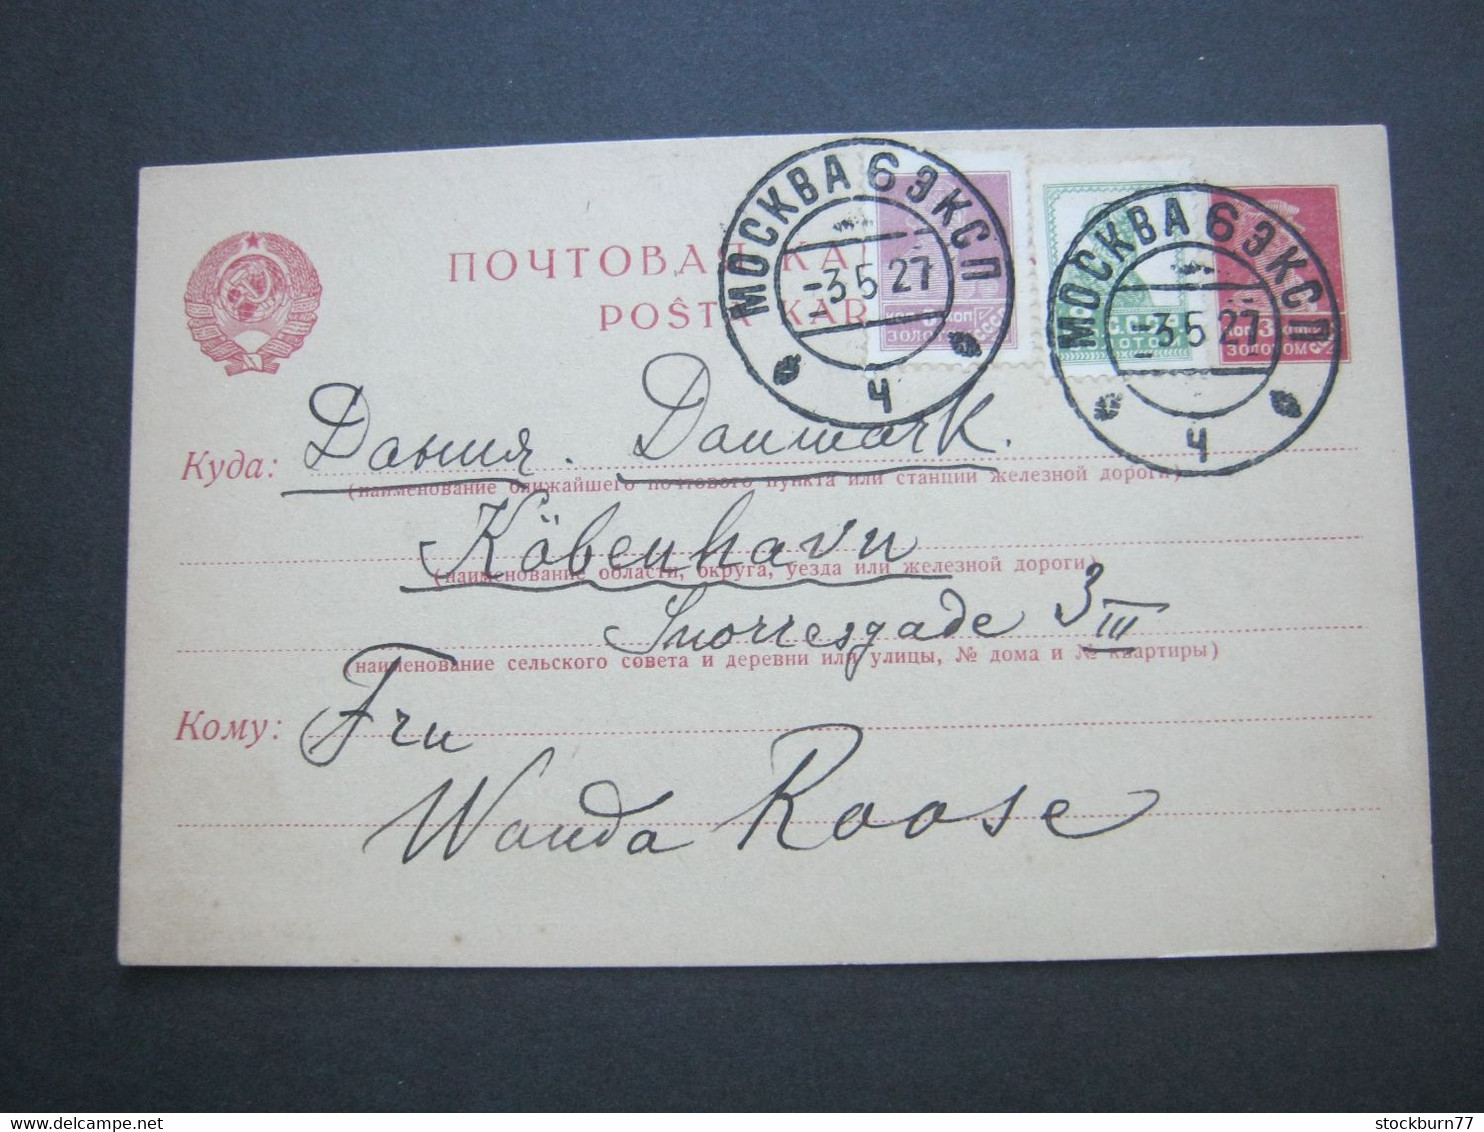 ПОЧТОВАЯ КА
POŜTA KAR
МОСКВА 6 ЭКСП
-3 5 27
Ч
КОП КОП
ЗОЛОТОМ
СССР
МОСКВА 6 ЭКСП
-3 5 27
Ч
С.С.С.Р.
ЗОЛОТОМ
КОП 3 КОП
ЗОЛОТОМ
Куда: Дания. Danmark.
(наименование ближайшего почтового пункта или станции железной дороги)
Köbenhavn
(наименование области, округа, уезда или железной дороги)
Snorresgade 3 III
(наименование сельского совета и деревни или улицы, № дома и № квартиры)
Кому: Fru
Wanda Roose
stockburn77